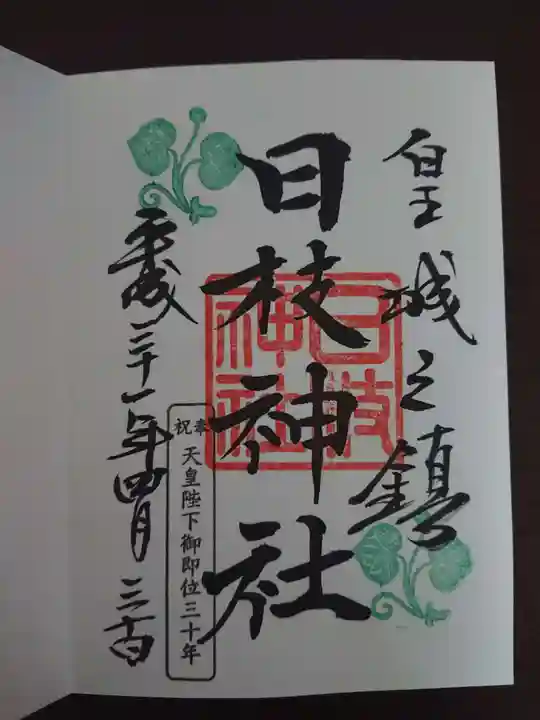 皇城之鎮
日枝神社
日枝神社
奉祝
天皇陛下御即位三十年
平成三十一年四月三十日